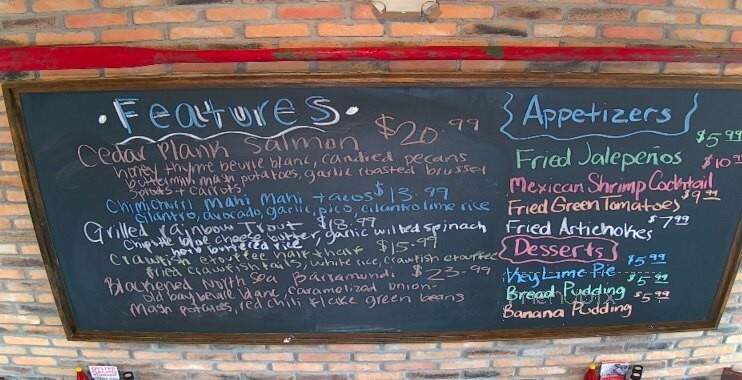 Features
Cedar Plank Salmon $20.99
honey thyme beurre blanc, candied pecans
buttermilk mash potatoes, garlic roasted brussel
sprouts + carrots
Chimichurri Mahi Mahi tacos $13.99
cilantro, avocado, garlic, pico, cilantro lime rice
Grilled rainbow Trout $18.99
Chipotle blue cheese butter, garlic wilted spinach
rice
Crawfish etouffee half + half $15.99
fried crawfish tails, white rice, crawfish etouffee
Blackened North Sea Barramundi $23.99
old bay beurre blanc, caramelized onion
mash potatoes, red chili flake green beans
Appetizers
Fried Jalepeños $5.99
Mexican Shrimp Cocktail $10
Fried Green Tomatoes $9.99
Fried Artichokes $7.99
Desserts
Key Lime Pie $5.99
Bread Pudding $5.99
Banana Pudding $5.99